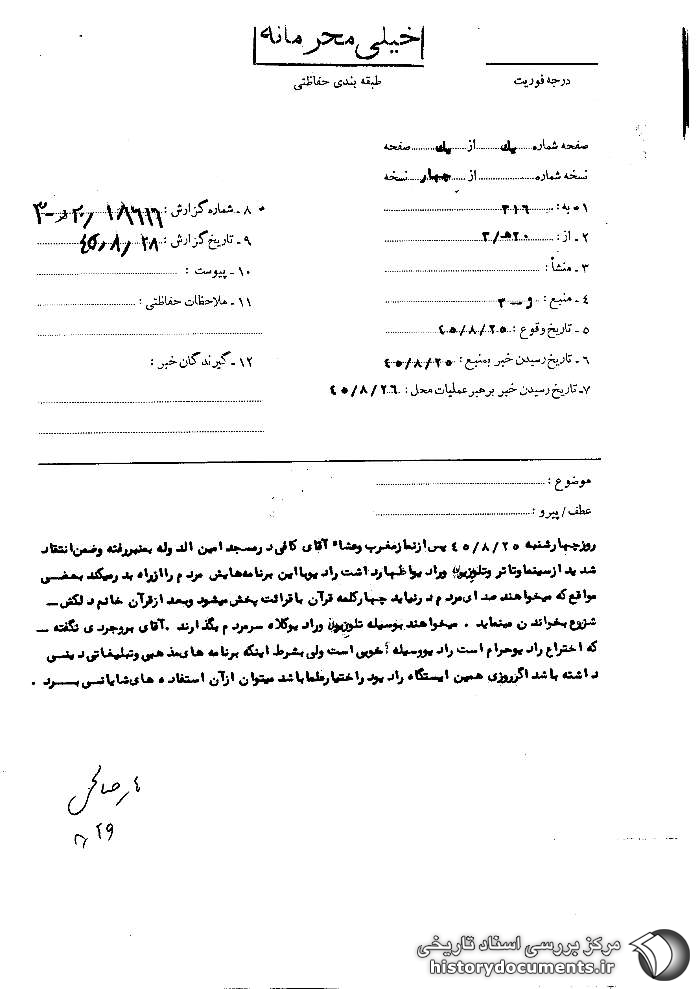 خیلی محرمانه
طبقه بندی حفاظتی
درجه فوریت
صفحه شماره یک از یک صفحه
نسخه شماره از چهار نسخه
۱ـ به: ۳۱۶
۲ـ از: ۲۰ﻫ/۲
۳ـ منشأ:
۴ـ منبع: و ـ ۳
۵ـ تاریخ وقوع: ۴۵/۸/۲۵
۶ـ تاریخ رسیدن خبر بمنبع: ۴۵/۸/۲۵
۷ـ تاریخ رسیدن خبر برهبر عملیات محل: ۴۵/۸/۲۶
۸ـ شماره گزارش:
۹ـ تاریخ گزارش: ۴۵/۸/۲۸
۱۰ـ پیوست:
۱۱ـ ملاحظات حفاظتی:
۱۲ـ گیرندگان خبر:
موضوع:
عطف/پیرو:
روز چهارشنبه ۴۵/۸/۲۵ پس از نماز مغرب وعشاء آقای کافی در مسجد امین الدوله بمنبر رفته وضمن انتقاد
شدید از سینما وتاتر وتلوزیون ورادیو اظهار داشت رادیو با این برنامه هایش مردم را از راه بدر میکند بعضی
مواقع که میخواهند صدای مردم در نیاید چهار کلمه قرآن با قرائت پخش میشود وبعد از قرآن خانم دلکش ـ
شروع بخواندن مینماید . میخواهند بوسیله تلوزیون ورادیو کلاه سر مردم بگذارند . آقای بروجردی نگفته ـ
که اختراع رادیو حرام است رادیو وسیله خوبی است ولی بشرط اینکه برنامه های مذهبی وتبلیغاتی دینی
داشته باشد اگر روزی همین ایستگاه رادیو در اختیار علما باشد میتوان از آن استفاده های شایانی بسرد .
صالحی
۲۹
مرکز بررسی اسناد تاریخی
historydocuments.ir